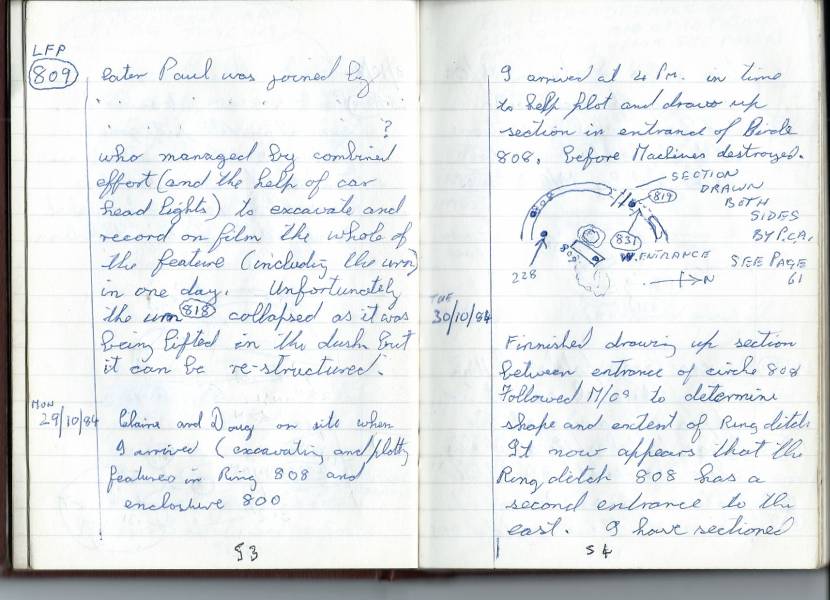 LFP
809
later Paul was joined by
. . . . .
. . . . ?
who managed by combined
effort (and the help of car
head lights) to excavate and
record on film the whole of
the feature (including the urn)
in one day. Unfortunately
the urn 818 collapsed as it was
being lifted in the dusk but
it can be re-structured.
MON
29/10/84
Claire and Doug on site when
I arrived (excavating and plotting
features in Ring 808 and
enclosure 800
53
I arrived at 4 PM. in time
to help plot and draw up
section in entrance of Circle
808. before Machines destroyed.
SECTION
DRAWN
BOTH
SIDES
BY P.C.A.
SEE PAGE
61
819
831
W. ENTRANCE
809
228
N
TUE
30/10/84
Finnished drawing up section
between entrance of circle 808
Followed M/cs to determine
shape and extent of Ring ditch
It now appears that the
Ring ditch 808 has a
second entrance to the
east. I have sectioned
54